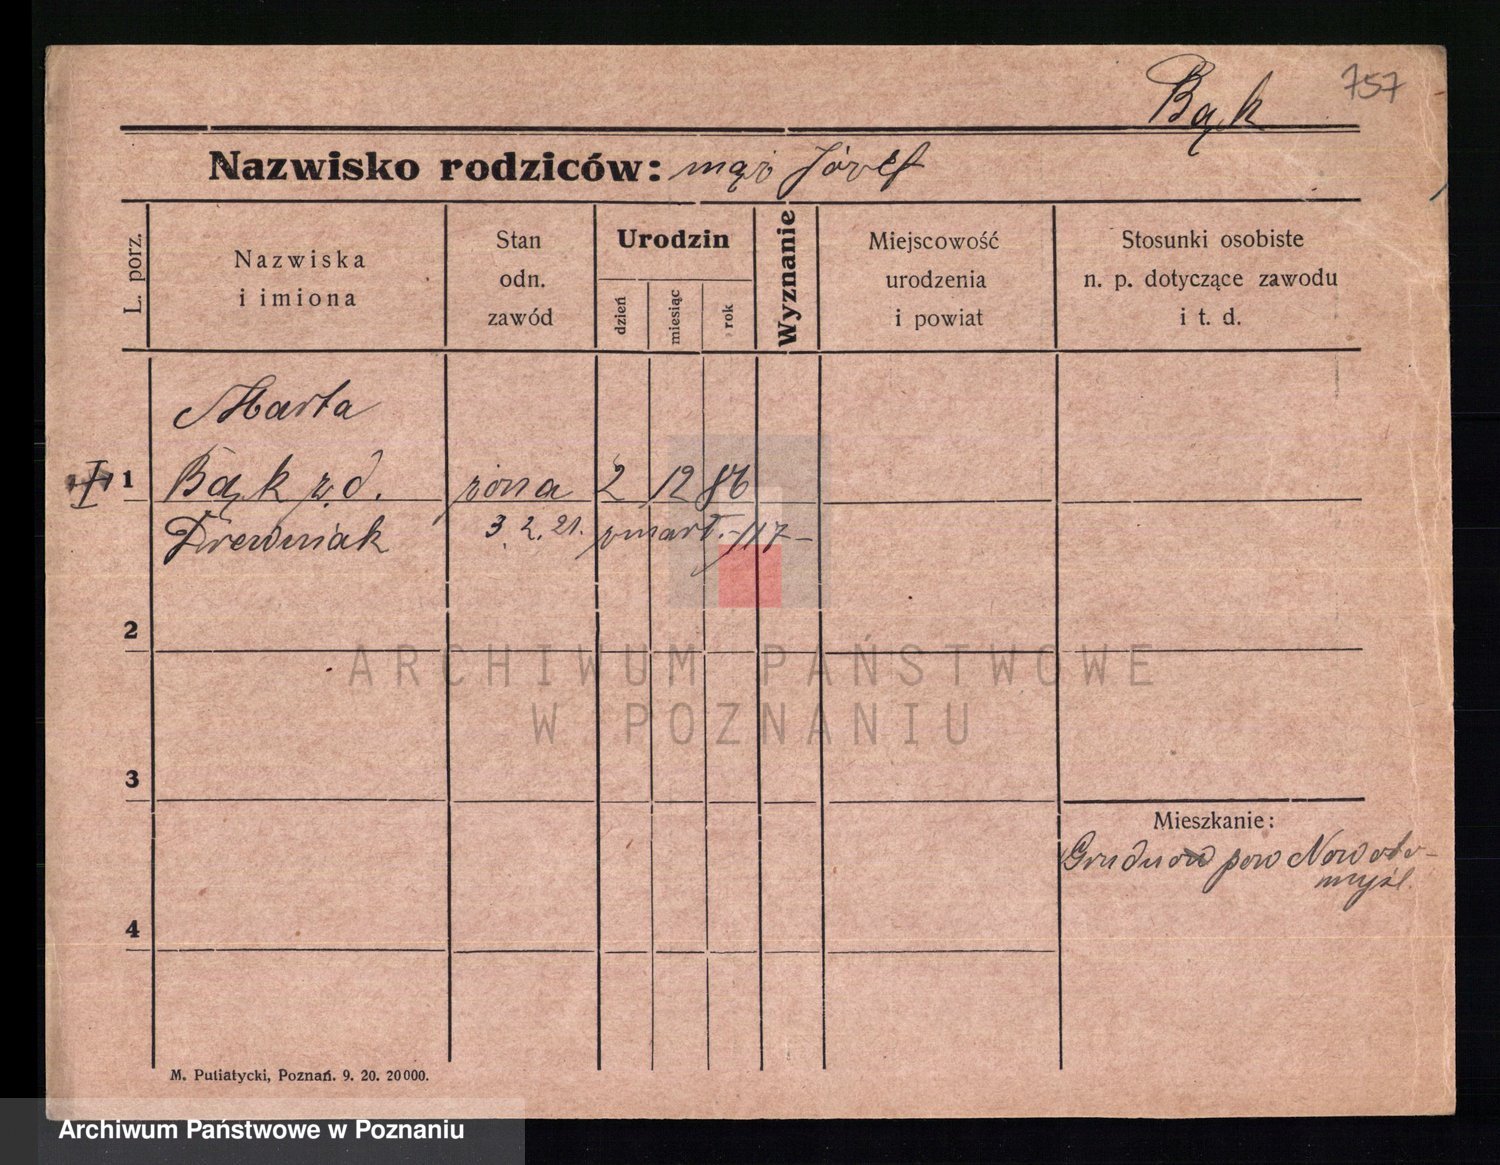 757
Bąk
Nazwisko rodziców: mąż Józef
L. porz.
Nazwiska
i imiona
Stan
odn.
zawód
Urodzin
dzień
miesiąc
rok
Wyznanie
Miejscowość
urodzenia
i powiat
Stosunki osobiste
n. p. dotyczące zawodu
i t. d.
Marta
1 Bąk żd. żona 2 12 86
Drewniak 3. 2. 21. zmarł. -117-
2
ARCHIWUM PAŃSTWOWE
W POZNANIU
3
Mieszkanie:
pow Nowoto-
myśl.
4
M. Putiatycki, Poznań. 9. 20. 20000.
Archiwum Państwowe w Poznaniu